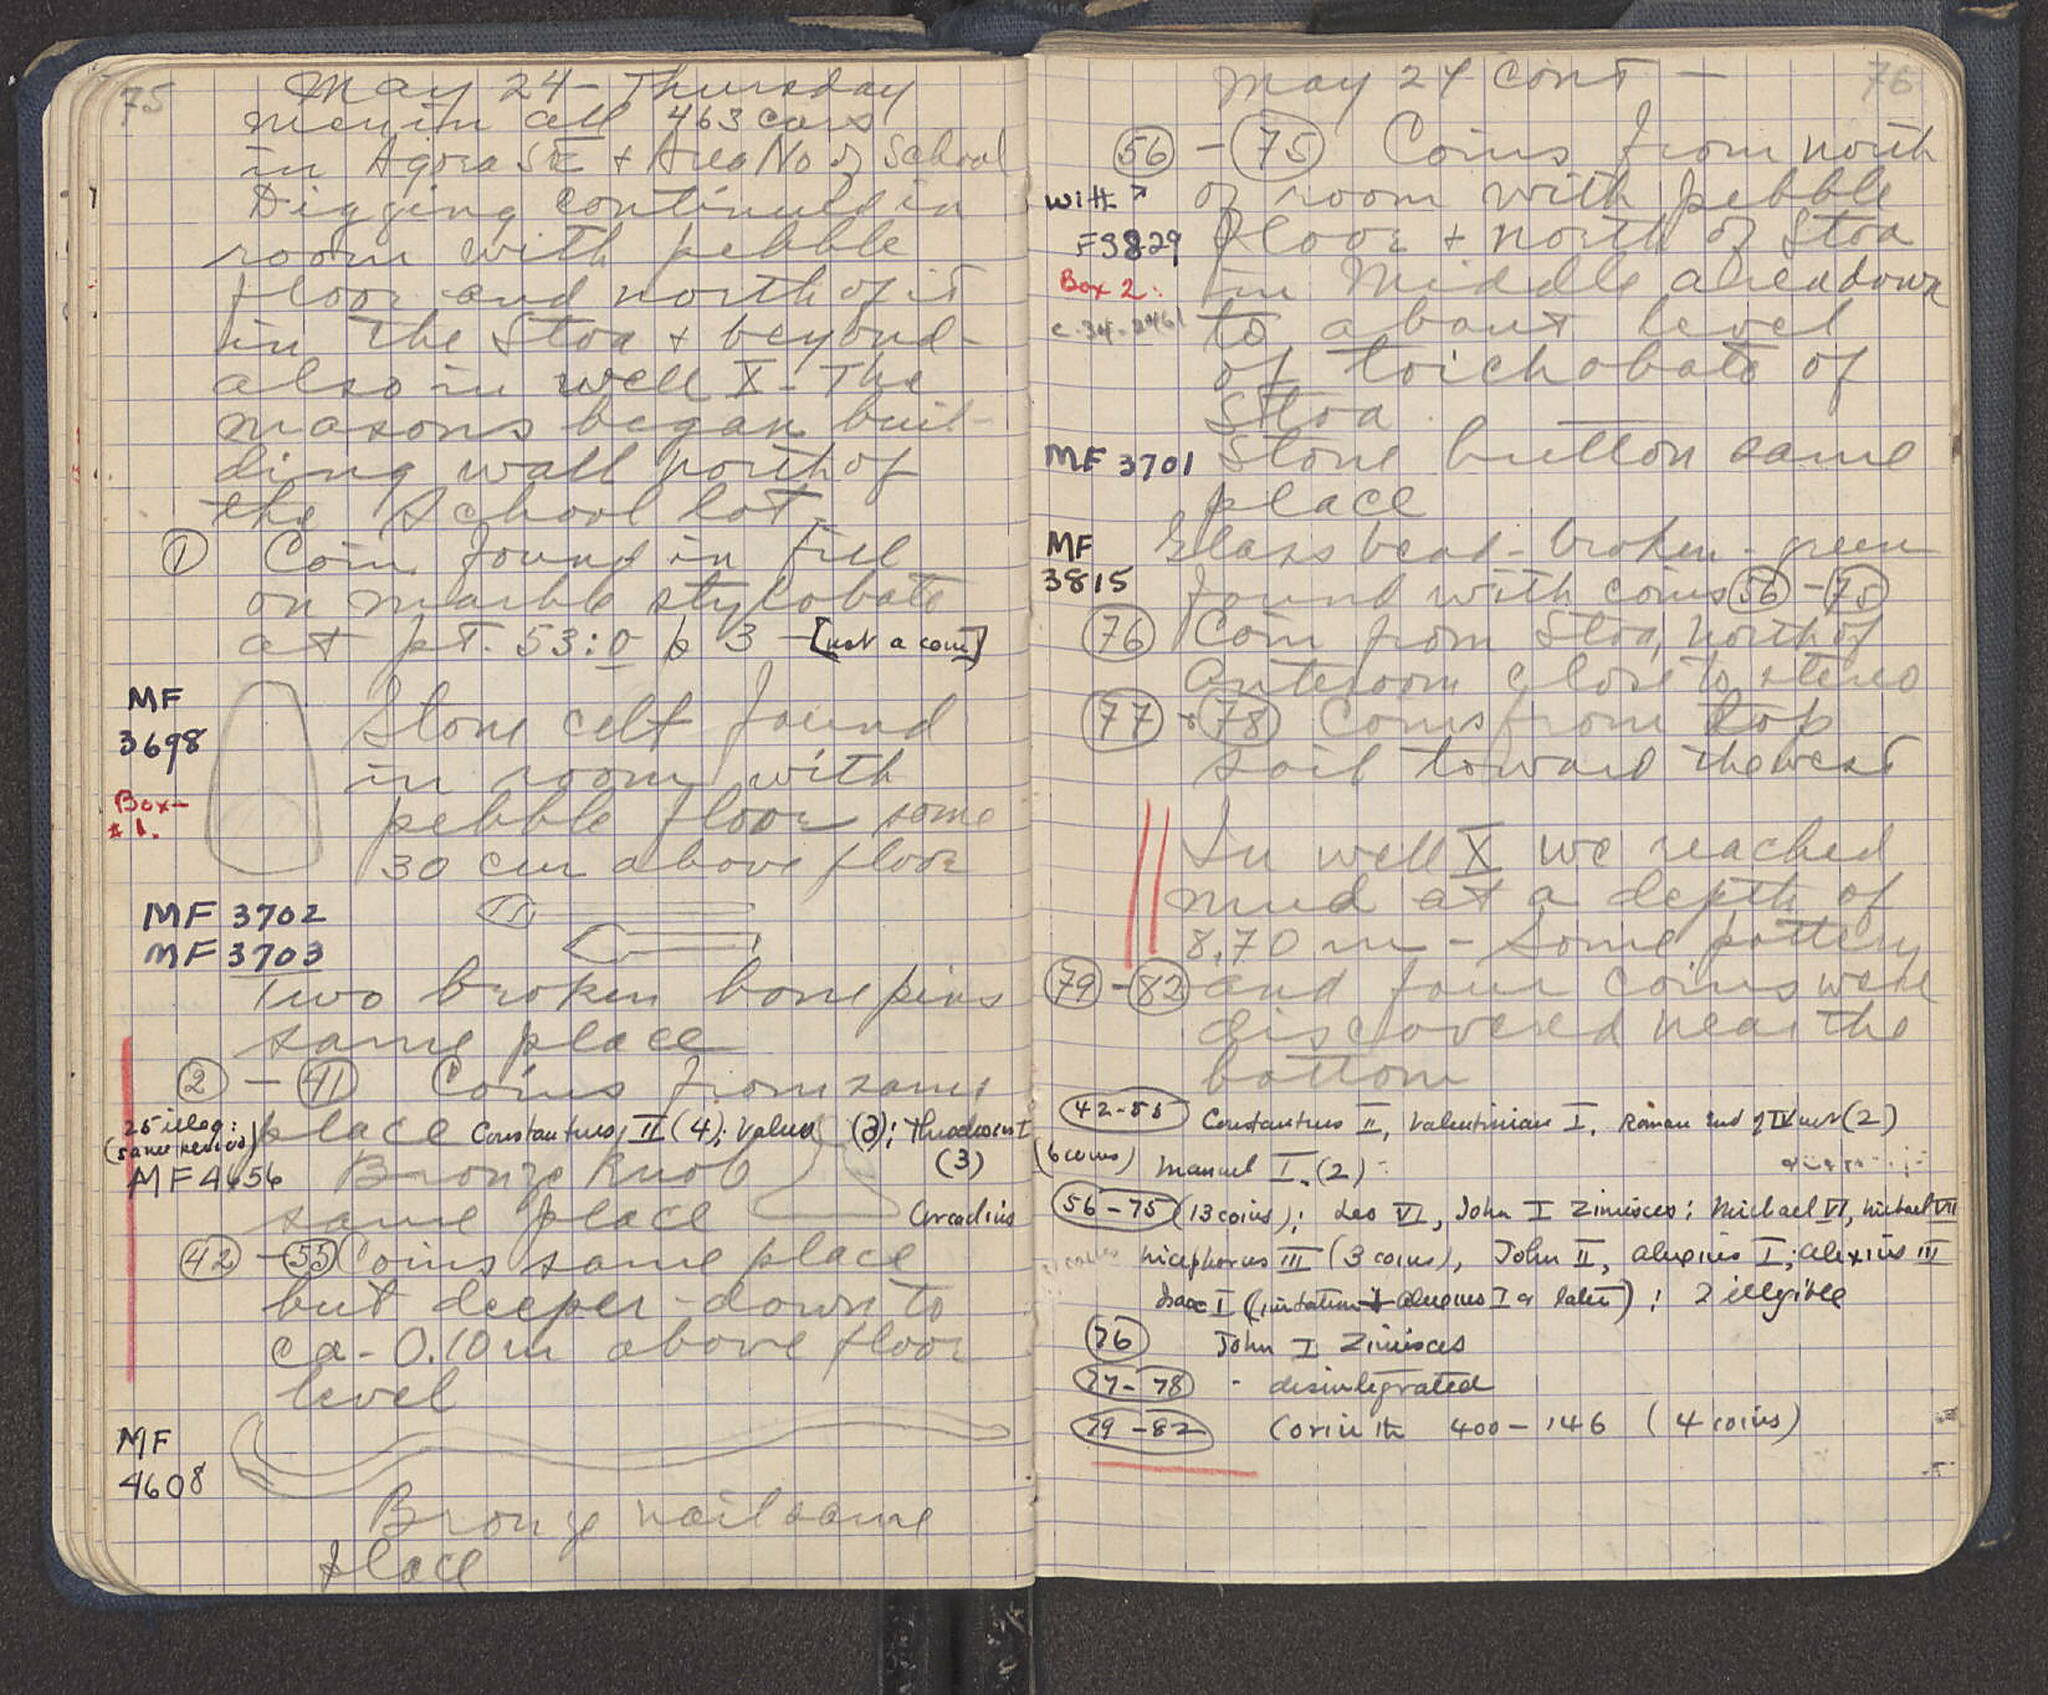 75
May 24 - Thursday
men in all 463 cars
in Agora SE + Area No of School
Digging continued in
room with pebble
floor and north of it
in the Stoa + beyond -
also in well X - The
masons began buil-
ding wall north of
the School lot.
① Coin found in fill
on marble stylobate
at pt. 53:0 p 3 - [not a coin]
MF
3698
Box -
# 1.
Stone celt found
in room with
pebble floor some
30 cm above floor
MF 3702
MF 3703
Two broken bone pins
same place
② - ㊶ Coins from same
25 illeg:
(same period)
place Constantius II (4); Valens (3); Theodosius I
(3)
Arcadius
MF 4656 Bronze knob
same place
㊷ - 55 Coins same place
but deeper - down to
ca - 0.10 m above floor
level
MF
4608
Bronze nail same
place
76
May 24 cont -
56 - 75 Coins from north
With
of room with pebble
F3829
floor + north of Stoa
Box 2:
in Middle area down
c-34-2461
to about level
of toichobate of
Stoa
MF 3701 Stone button same
place
MF
3815
Glass bead - broken - green
found with coins 56 - 75
76 Coin from Stoa, north of
Anteroom close to stereo
77 + 78 Coins from top
soil toward the west
In well X we reached
mud at a depth of
8.70 m - Some pottery
79 - 82 and four coins were
discovered near the
bottom
42-55 Constantius II, Valentinian I, Roman 2nd of IV cent (2)
(6 coins) Manuel I. (2)
56-75 (13 coins); Leo VI, John I Zimisces; Michael VI, Michael VII
Nicephorus III (3 coins), John II, Alexius I; Alexius III
Isaac I (imitation Alexius I or later); 2 illegible
76 John I Zimisces
77-78 - disintegrated
79-82 Corinth 400-146 (4 coins)